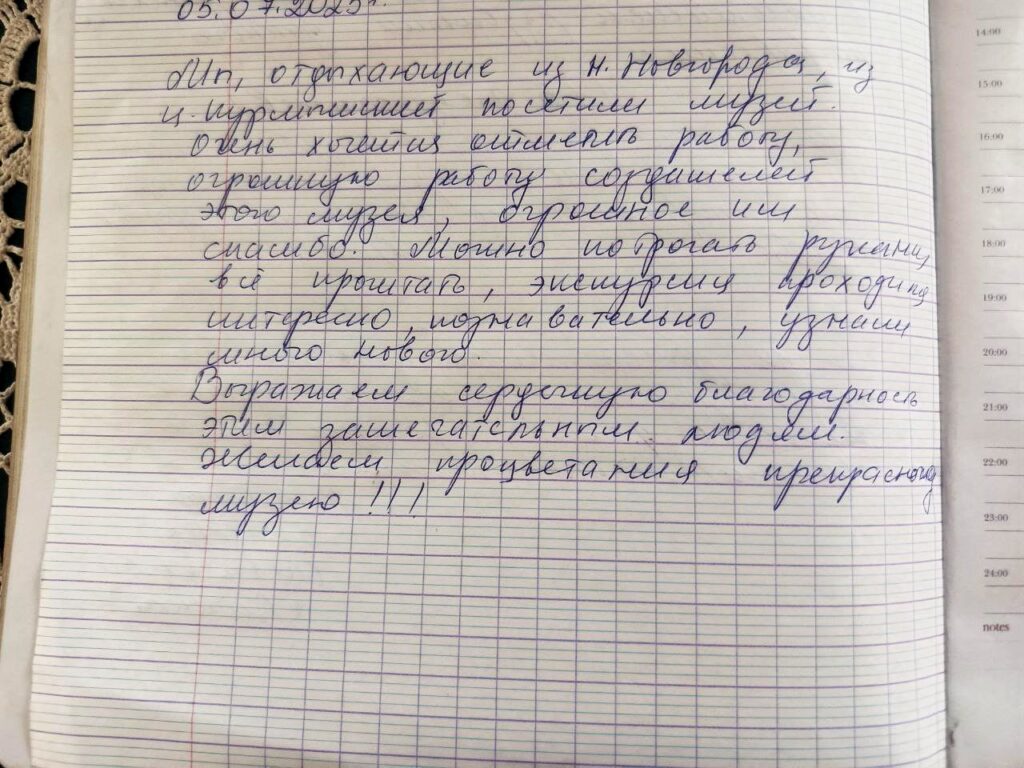 05.07.2025г.
Мы, отдыхающие из Н. Новгорода, из
посетили музей.
Очень хочется отметить работу,
огромную работу создателей
этого музея, огромное им
спасибо. Можно потрогать руками,
всё прочитать, экскурсия проходила
интересно, познавательно, узнали
много нового.
Выражаем сердечную благодарность
этим замечательным людям.
Желаем процветания прекрасному
музею !!!
14:00
15:00
16:00
17:00
18:00
19:00
20:00
21:00
22:00
23:00
24:00
notes